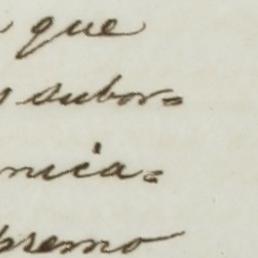 que
subor=
nica=
premo